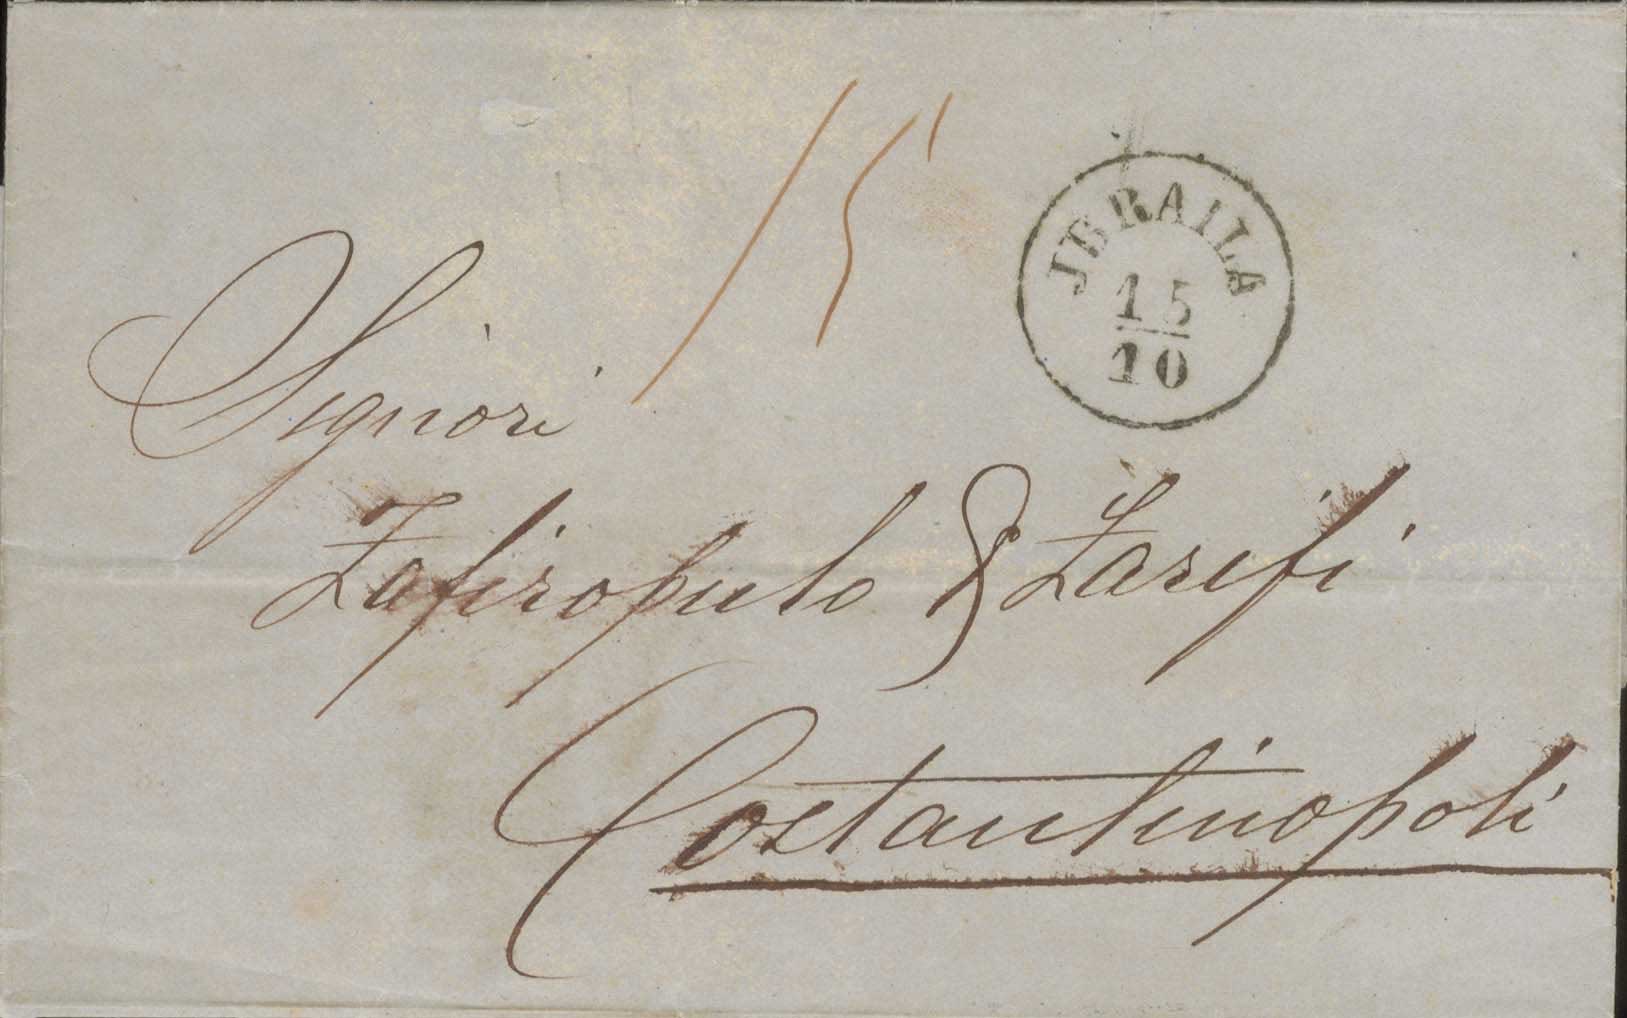 15
JBRAILA
15
10
Signori
Zafiropulo & Zarifi
Costantinopoli